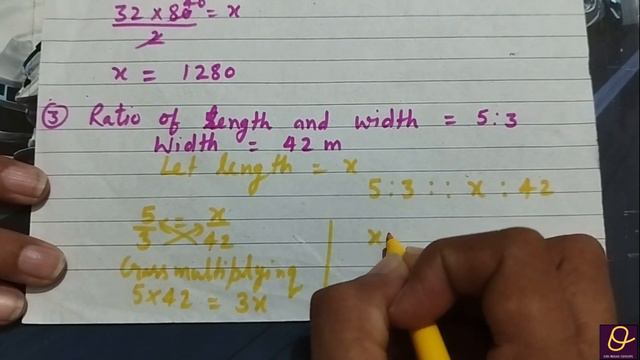 32 × 80 40 = x
2
x = 1280
③ Ratio of length and width = 5:3
Width = 42 m
Let length = x
5 : 3 : : x : 42
5/3 = x/42
Cross multiplying
5×42 = 3x
x